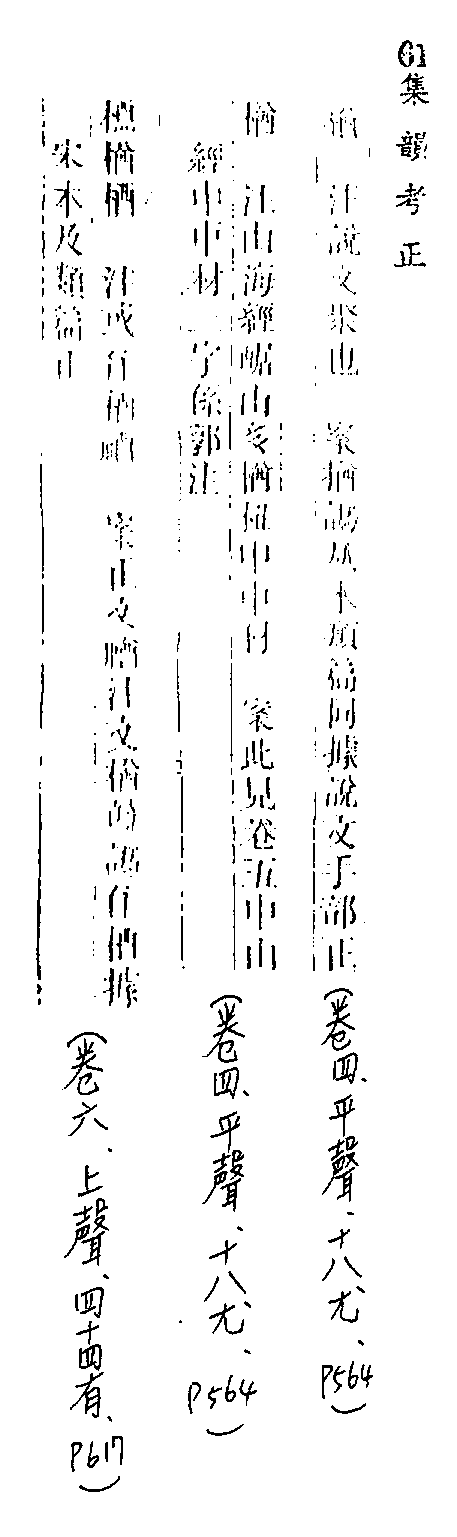 61集韻考正
注說文聚也 案揂譌从木類篇同據說文手部正
(卷四、平聲、十八尤、P564)
楢 注山海經崌山多楢杻中車材 案此見卷五中山
經中車材二字係郭注
(卷四、平聲、十八尤、P564)
槱楢栖 注或作栖 案正文 注文楢 譌作栖據
宋本及類篇正
(卷六、上聲、四十四有、P617)